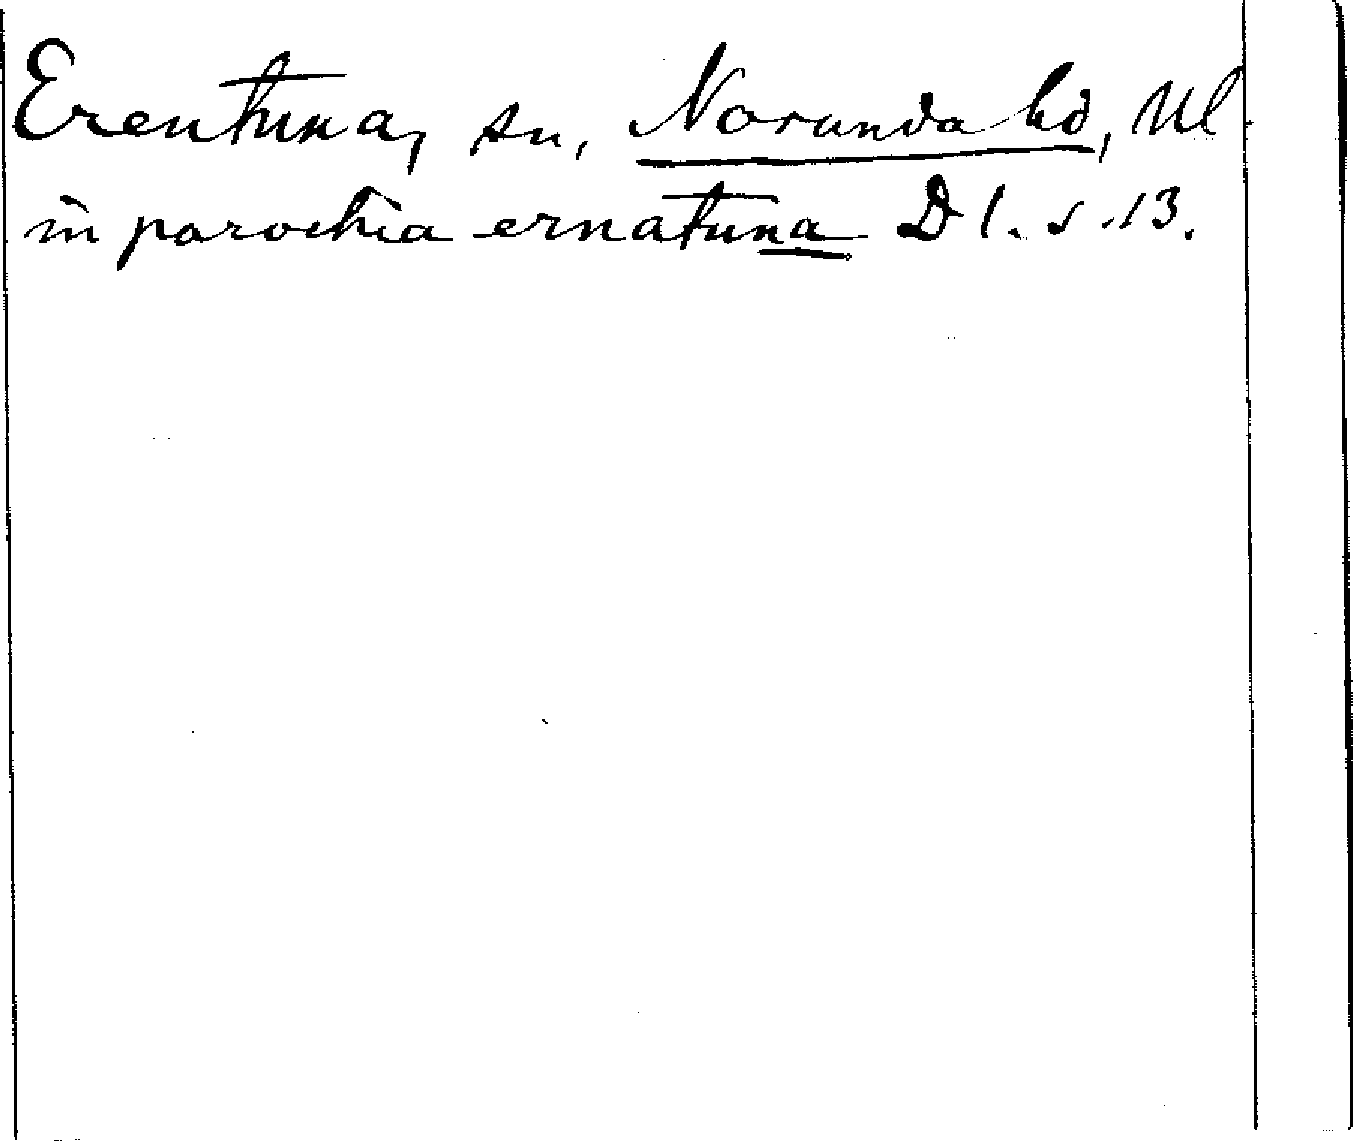 Erentuna, sn, Norunda hd, Ul
in parochia ernatuna D 1. s. 13.